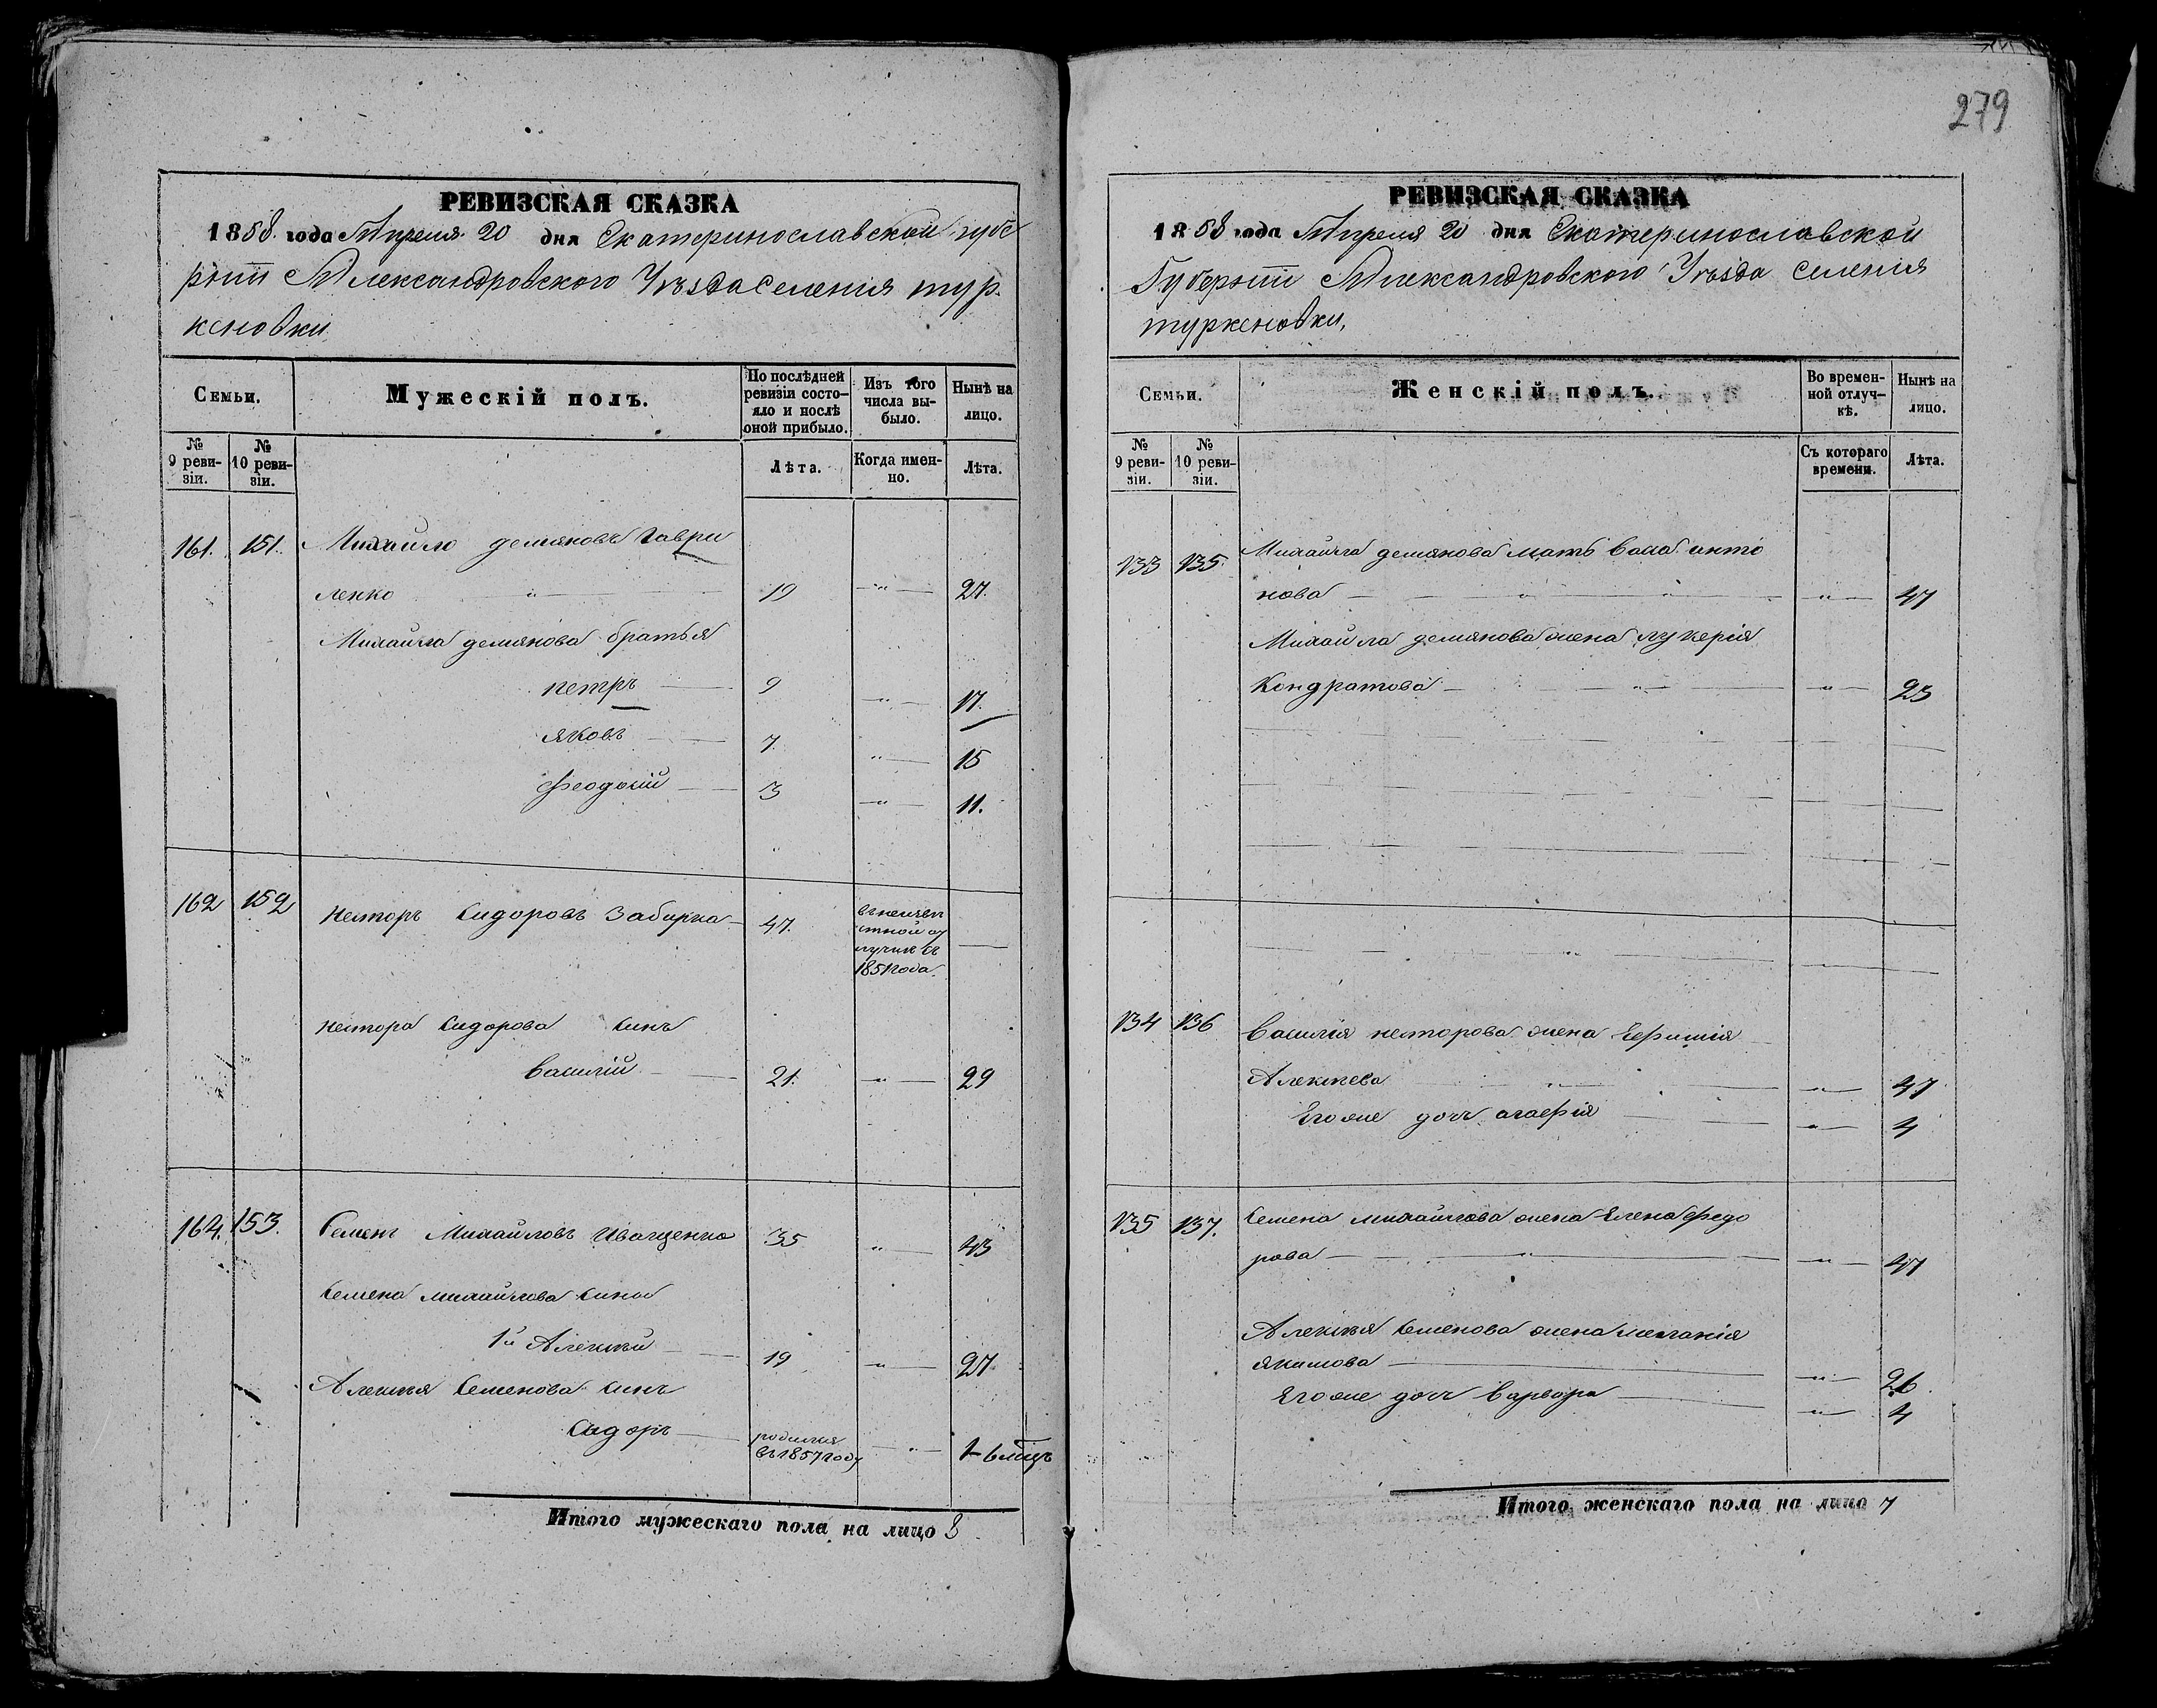 279
РЕВИЗСКАЯ СКАЗКА
1858. года Апреля 20 дня Екатеринославской губе
рніи Александровского Уѣзда Селенія тур-
кеновки.
Семьи.
Мужескій полъ.
По послѣдней ревизіи состояло и послѣ оной прибыло.
Изъ того числа выбыло.
Нынѣ на лицо.
№ 9 ревизіи.
№ 10 ревизіи.
Лѣта.
Когда именно.
Лѣта.
161. 151. Михайло демяновъ Гаври
ленко — „ — 19 — „ — 27.
Михайла демянова братья
петръ — 9 — „ — 17.
яковъ — 7 — „ — 15
феодосій — 3 — „ — 11.
162 152 Несторъ Сидоровъ Забирка — 47. —
1851 года.
Нестора Сидорова Синъ
василій — 21. — „ — 29
164. 153. Семенъ Михайловъ Иващенко 35 — „ — 43
Семена михайлова Сины
1й Алексѣй — 19 — „ — 27
Алексѣя Семенова Синъ
Сидоръ — родился
въ 1857 году — „ — 1-6 мѣцъ
Итого мужескаго пола на лицо 8
РЕВИЗСКАЯ СКАЗКА
1858 года Апреля 20 дня Екатеринославской
Губерніи Александровского Уѣзда Селенія
туркеновки,
Семьи.
Женскій полъ.
Во временной отлучкѣ.
Нынѣ на лицо.
№ 9 ревизіи.
№ 10 ревизіи.
Съ котораго времени.
Лѣта.
133 135. Михайла демянова мать васа анто
нова — „ — „ — 47
Михайла демянова жена лукерія
Кондратова — „ — „ — 23
134 136 Василія несторова жена
Алексѣева — „ — „ — 47
Егоже дочь агафія — „ — 4
135 137. Семена михайлова жена Елена федо
рова — „ — „ — 47
Алексѣя Семенова жена меланія
якимова — „ — 26
Егоже дочь варвара — „ — 4
Итого женскаго пола на лицо 7